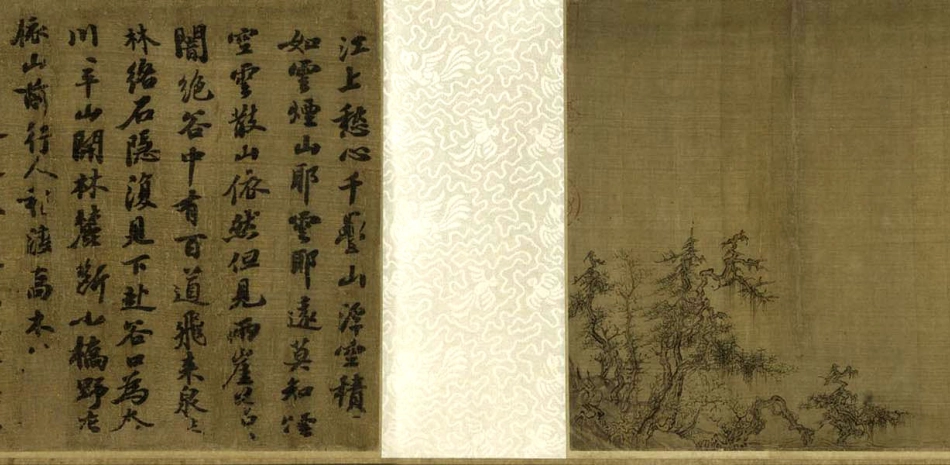 江上愁心千疊山浮空積
如雲煙山耶雲耶遠莫知煙
空雲散山依然但見兩崖蒼〻
闇絕谷中有百道飛來泉
林絡石隱復見下赴谷口為
川平山開林麓斷小橋野店
依山前行人稍度高木